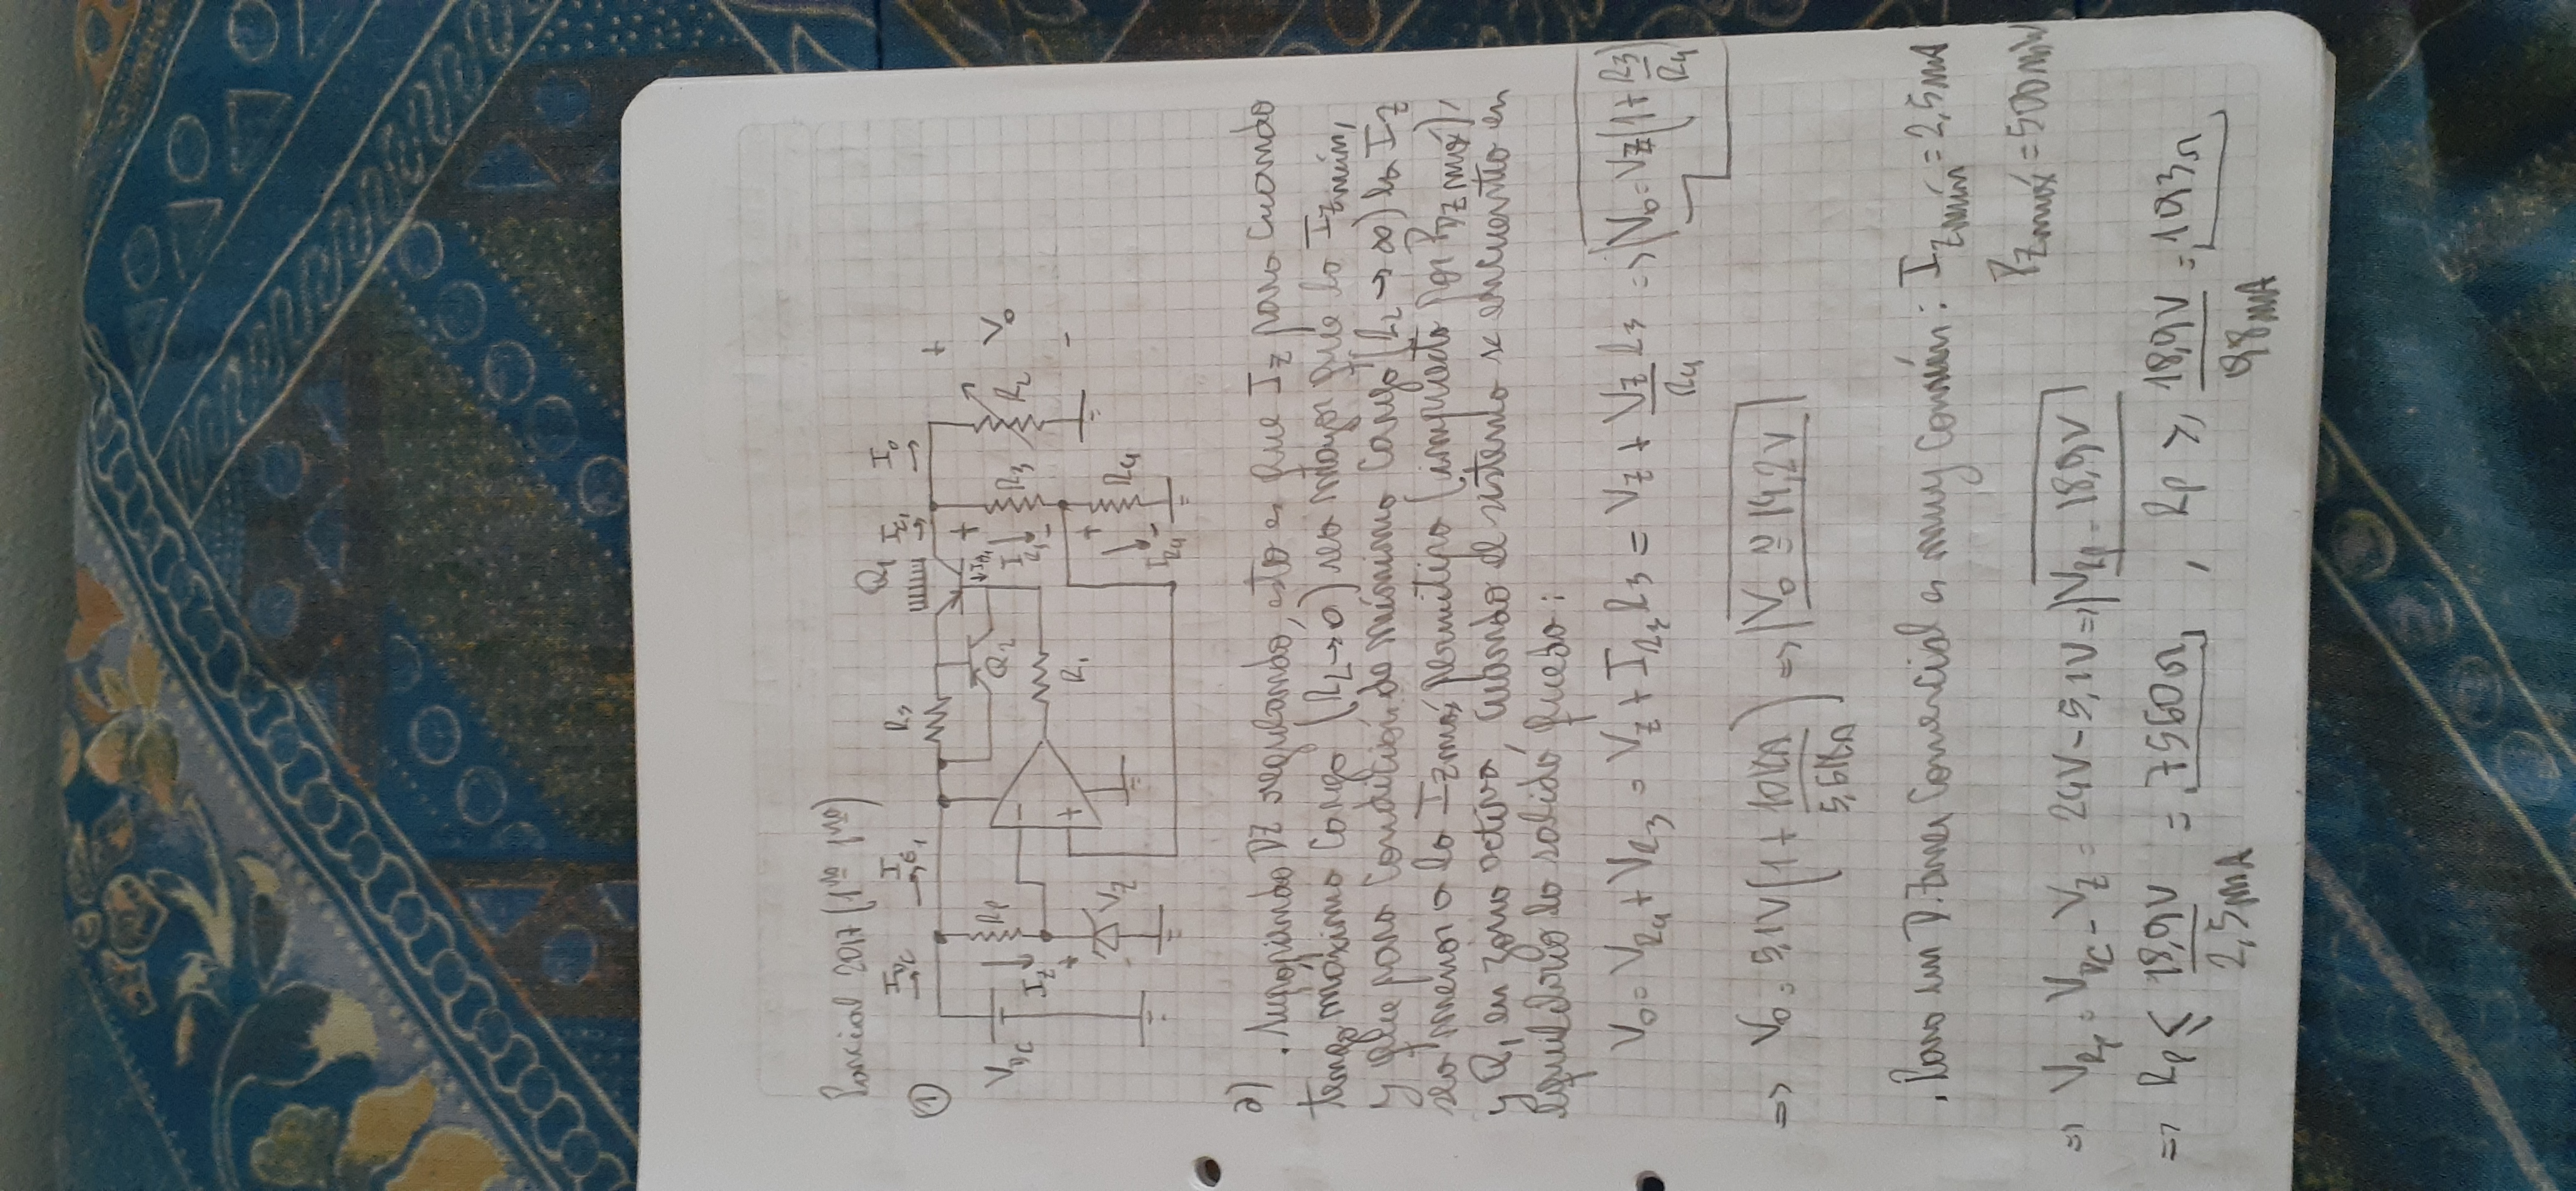 Parcial 2017 (1ra 1ra)
①
I_DC
I_E1
R_S
Q1
I_C1
I_o
V_DC
R_P
I_Z
V_Z
Q2
I_B1
R1
R3
R_L
V_o
R4
I_R4
a)
. Suponiendo DZ regulando, esto es que I_Z para cuando
tengo máxima carga (R_L → 0) sea mayor que la I_Zmín,
y que para condición de mínima carga (R_L → ∞) la I_Z
sea menor a la I_Zmáx permitida (impuesta por P_DZmáx),
y Q1 en zona activa, cuando el sistema se encuentra en
equilibrio la salida queda:
V_o = V_R4 + V_R3 = V_Z + I_R3 R3 = V_Z + V_Z/R4 R3 => V_o = V_Z (1 + R3/R4)
=> V_o = 5,1V (1 + 10KΩ/5,6KΩ) => V_o ≅ 14,2V
. Para un D. Zener comercial es muy común: I_Zmín = 2,5mA
P_Zmáx = 500mW
=> V_RP = V_DC - V_Z = 24V - 5,1V => V_RP = 18,9V
=> R_P ≤ 18,9V/2,5mA = 7560Ω, R_P ≥ 18,9V/98mA = 193Ω